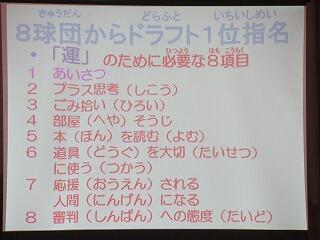 きゅうだん どらふと いちいしめい
8球団からドラフト1位指名
ひつよう はち こうもく
・「運」のために必要な8項目
1 あいさつ
2 プラス思考（しこう）
3 ごみ拾い（ひろい）
4 部屋（へや）そうじ
5 本（ほん）を読む（よむ）
6 道具（どうぐ）を大切（たいせつ）
に使う（つかう）
7 応援（おうえん）される
人間（にんげん）になる
8 審判（しんぱん）への態度（たいど）